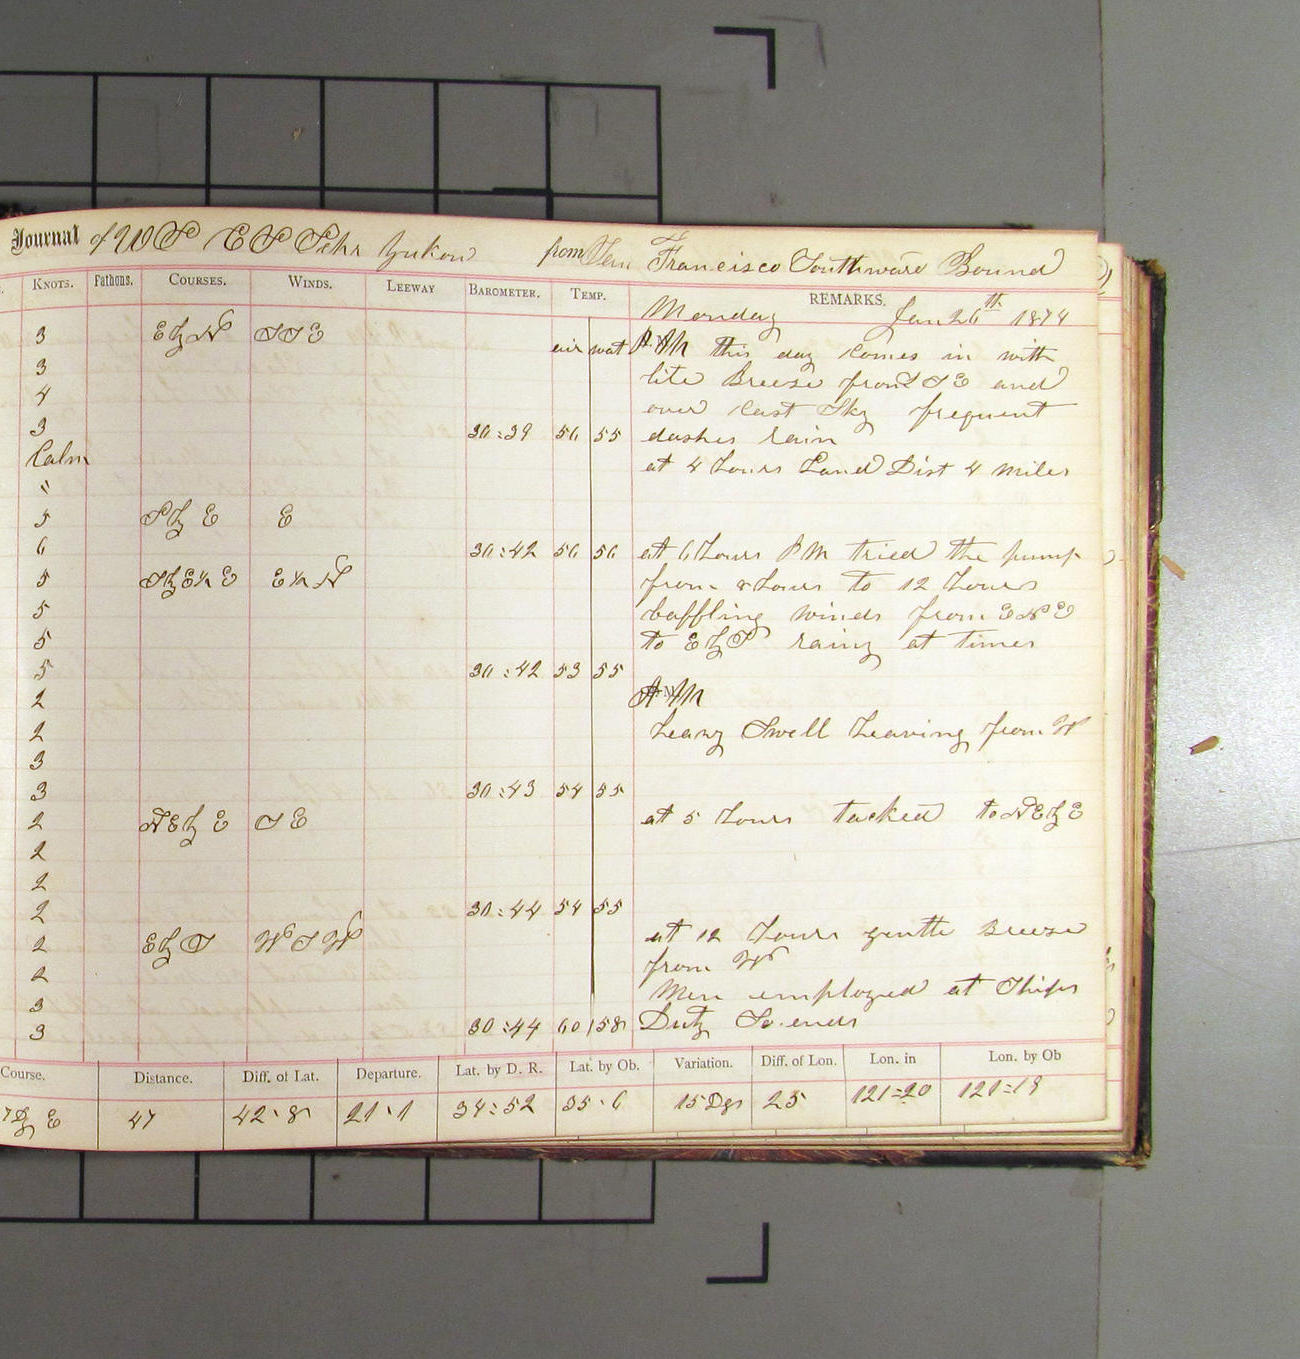 Journal of US CS Schr Yukon from San Francisco Southward Bound
KNOTS. Fathoms. COURSES. WINDS. LEEWAY BAROMETER. TEMP. REMARKS.
Monday Jan 26th 1874
3 EbyN SSE air wat P.M this day Comes in with
3 lite Breeze from SSE and
4 over Cast Sky frequent
3 30:39 56 55 dashes rain
Calm at 4 hours Land Dist 4 miles
"
5 SbyE E
6 30:42 56 56 at 6 hours PM tried the pump
5 SbyE½E E½N from 8 hours to 12 hours
5 baffling winds from ENE
5 to EbyS rainy at times
5 30:42 53 55
2 A.M
2 heavy Swell heaving from W
3
3 30:43 54 55
2 NEbyE SE at 5 hours tacked to NEbyE
2
2
2 30:44 54 55
2 EbyS WSW at 12 hours gentle Breeze
2 from W
3 Men employed at Ships
3 30:44 60 58 Duty So ends
Course. Distance. Diff. of Lat. Departure. Lat. by D. R. Lat. by Ob. Variation. Diff. of Lon. Lon. in Lon. by Ob
by E 47 42.8 21.1 34:52 35.6 15Dgs 25 121=20 121=19